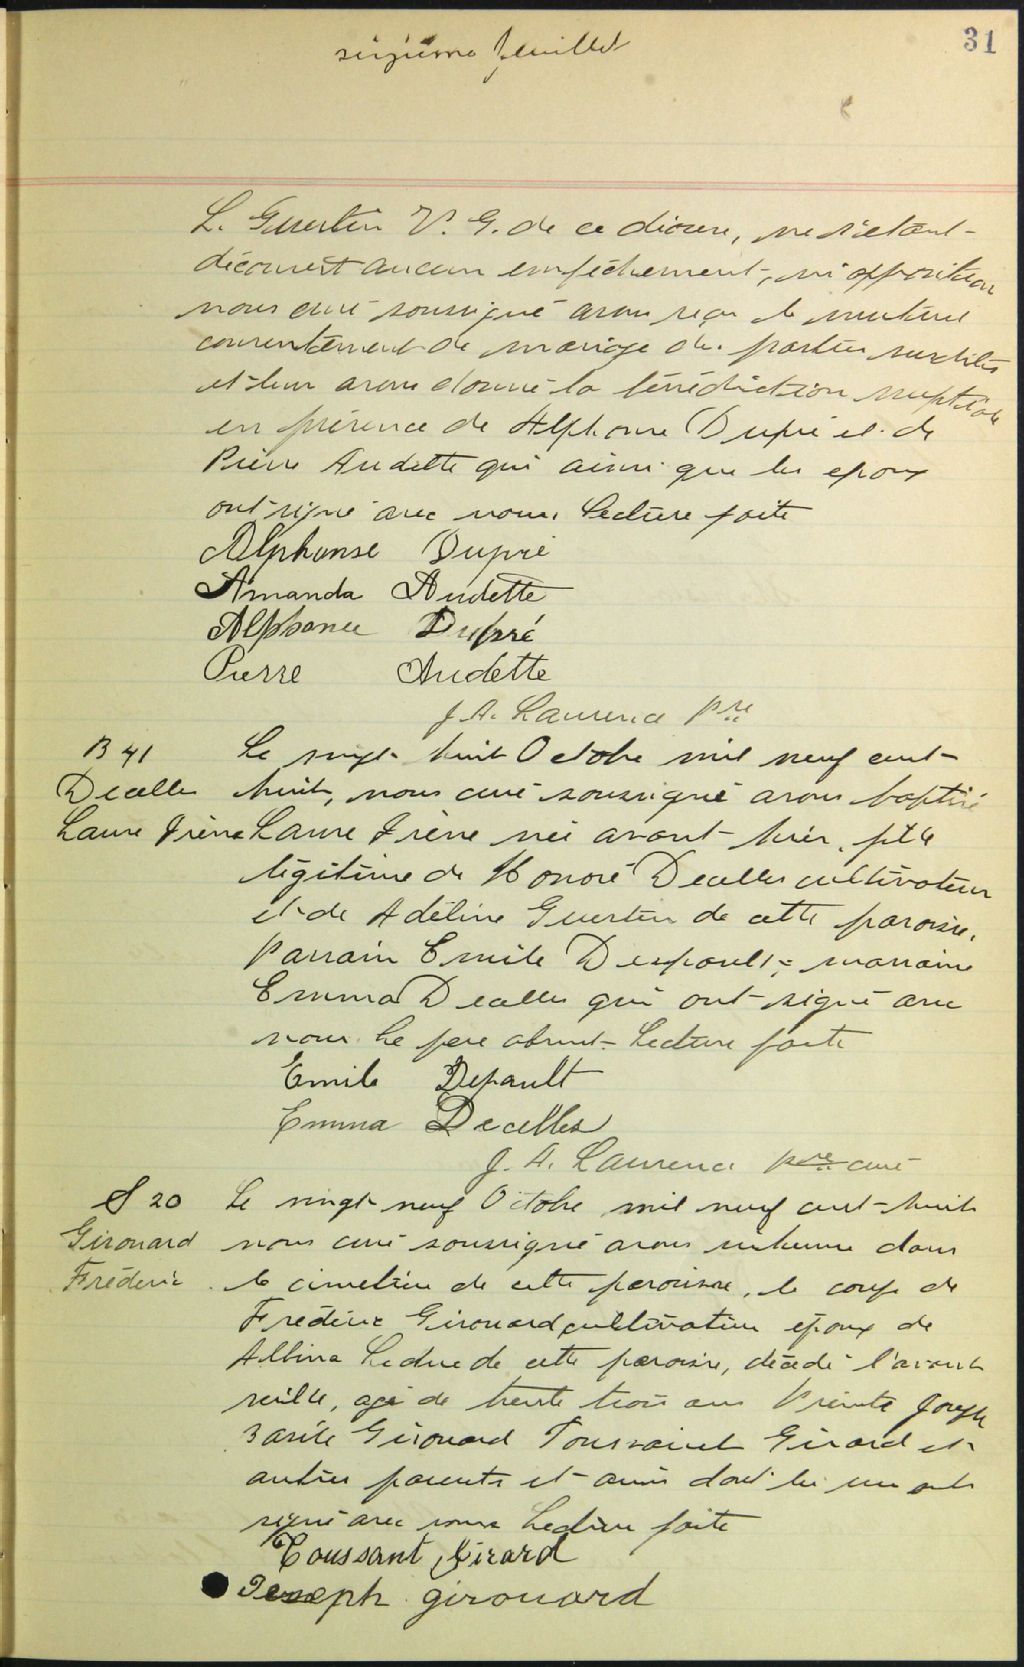 sixième feuillet
31
L. Guertin V. G. de ce diocèse, ne s'étant
découvert aucun empêchement, ni opposition
nous curé soussigné avons reçu le mutuel
consentement de mariage des parties susdites
et leur avons donné la bénédiction nuptiale
en présence de Alphonse Dupré et de
Pierre Audette qui ainsi que les epoux
ont signé avec nous. Lecture faite
Alphonse Dupré
Amanda Audette
Alphonse Dupré
Pierre Audette
J. A. Laurence Ptre
B 41
Decelles
Laure Irène
Le vingt huit Octobre mil neuf cent
huit, nous curé soussigné avons baptisé
Laure Irène née avant hier, fille
légitime de Honoré Decelles cultivateur
et de Adéline Guertin de cette paroisse.
Parrain Emile Depault, marraine
Emma Decelles qui ont signé avec
nous. Le père absent. Lecture faite
Emile Depault
Emma Decelles
J. A. Laurence ptre curé
S 20
Girouard
Fréderic
Le vingt neuf Octobre mil neuf cent huit
nous curé soussigné avons inhumé dans
le cimetière de cette paroisse, le corps de
Fréderic Girouard cultivateur époux de
Albina Leduc de cette paroisse, décédé l'avant
veille, agé de trente trois ans Présents Joseph
Basile Girouard Toussaint Girard et
autres parents et amis dont les uns ont
signé avec nous Lecture faite
Toussant Girard
Joseph girouard